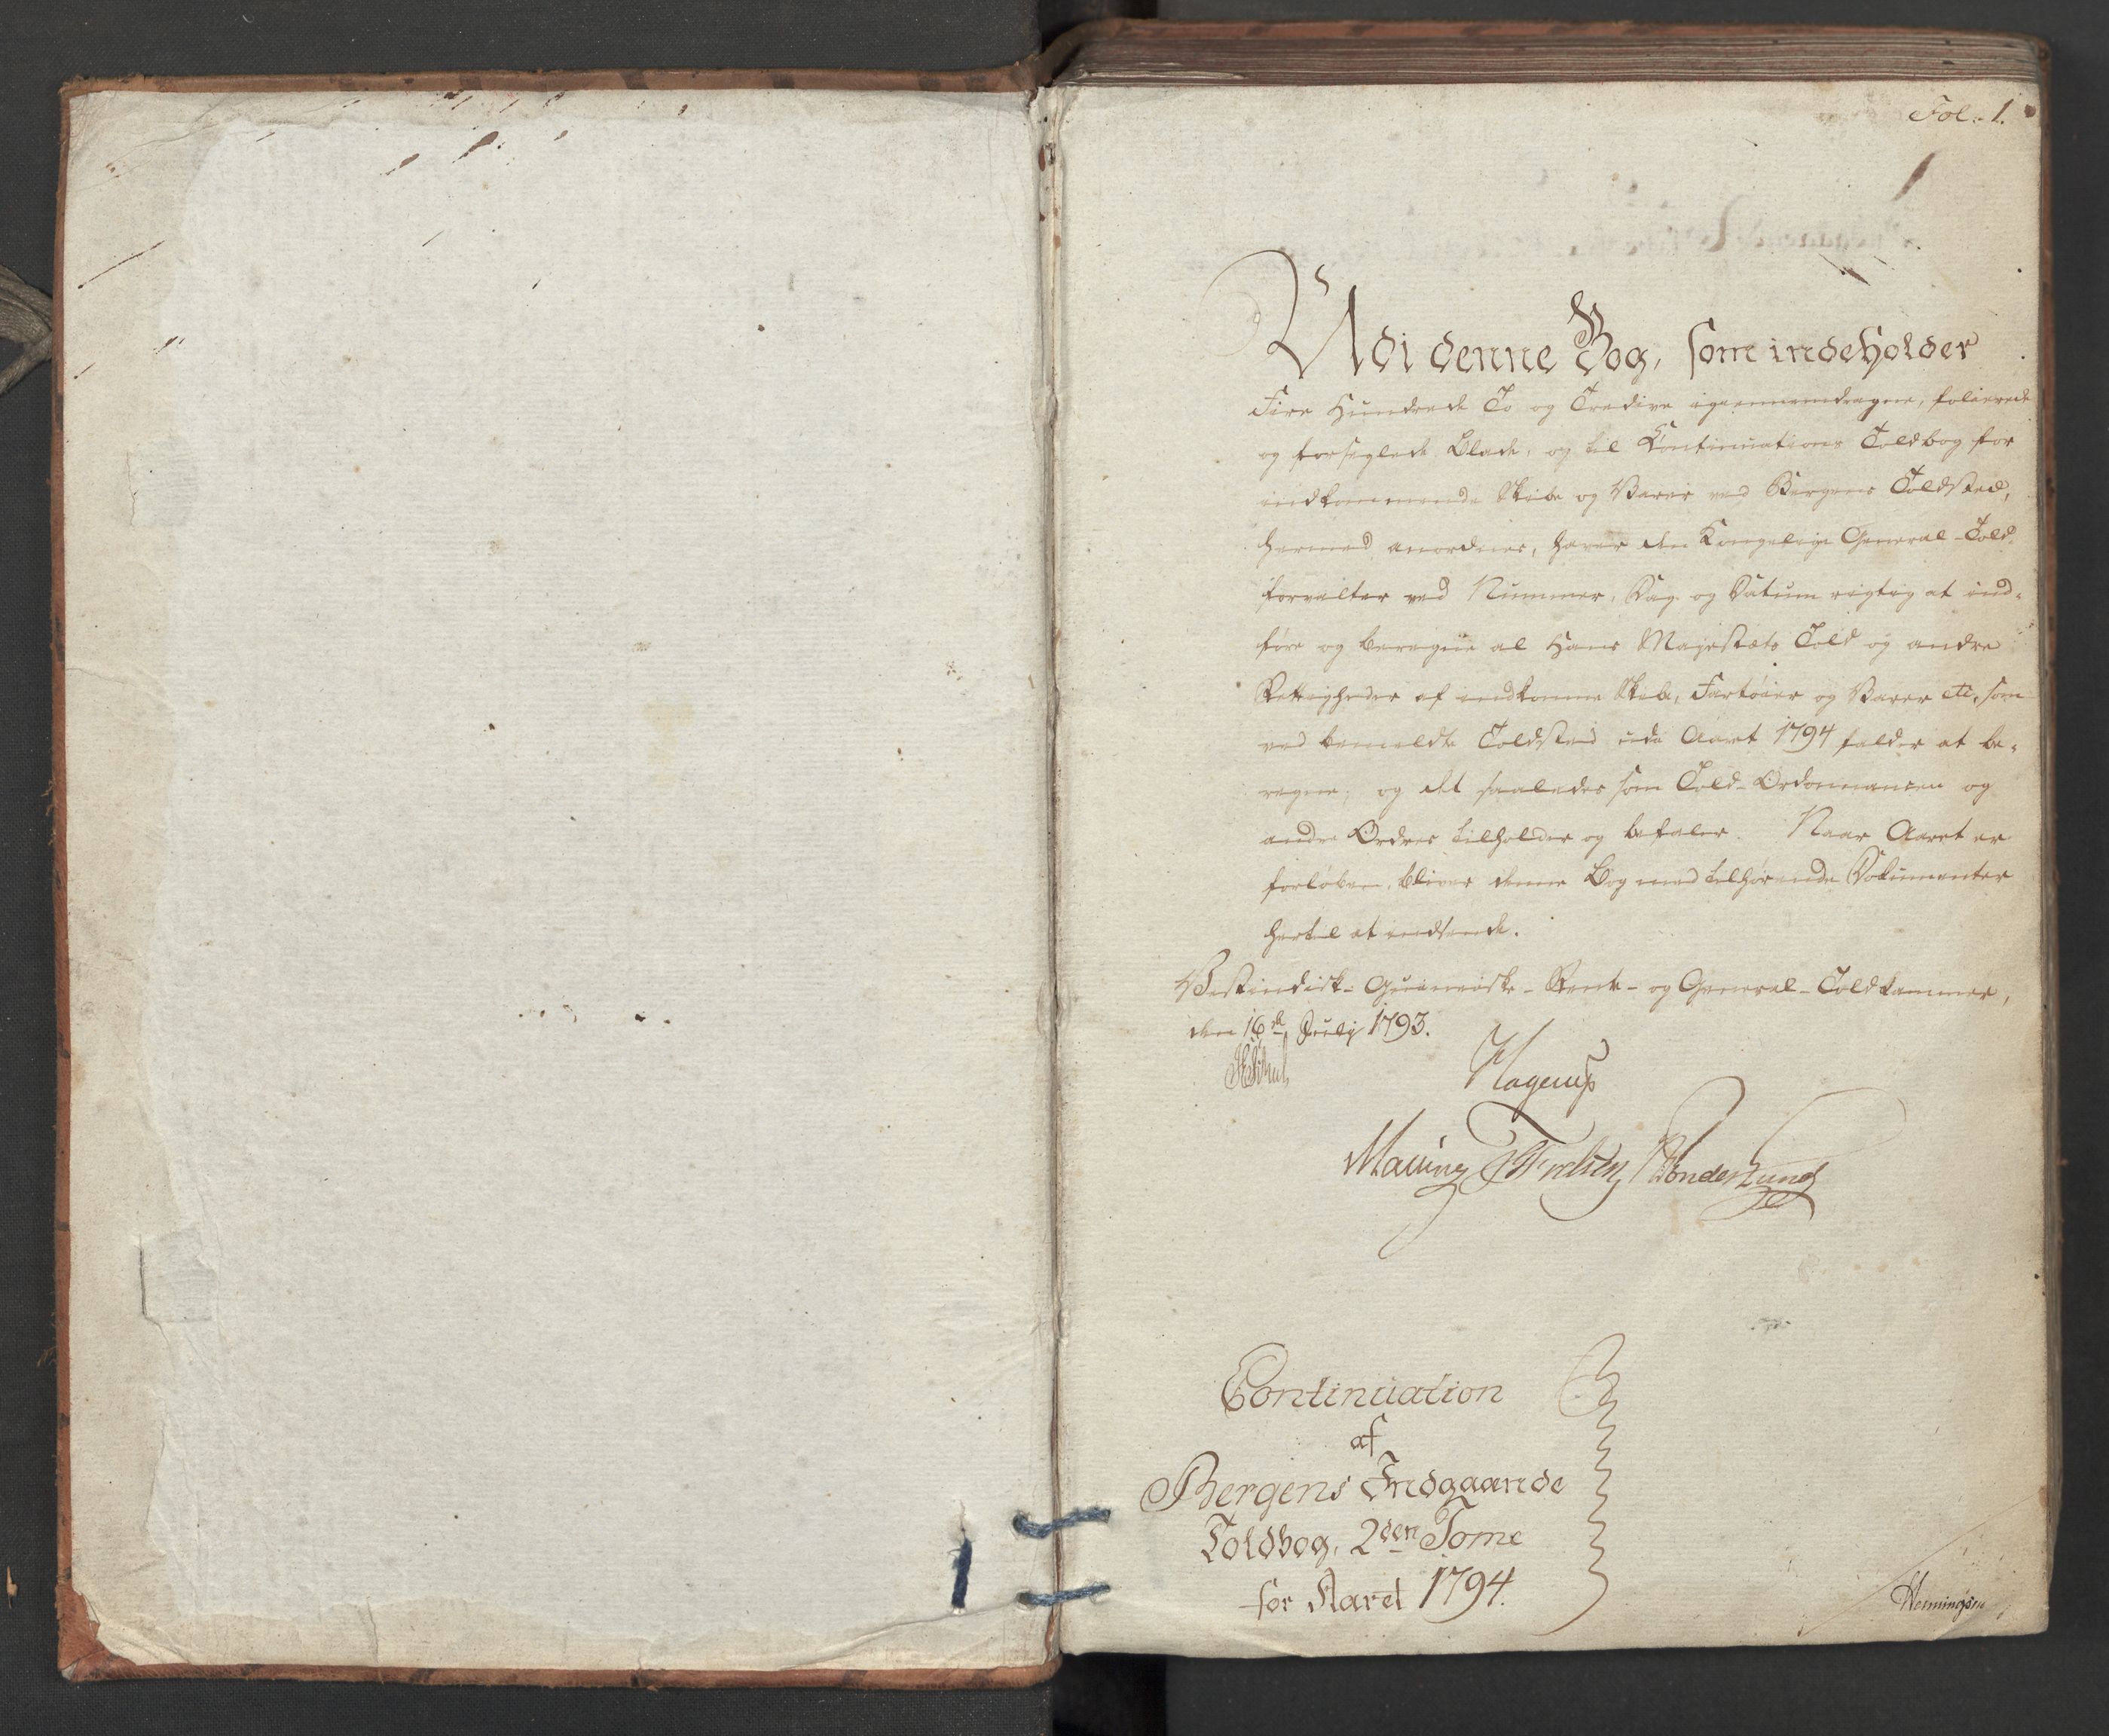 Fol: 1.
Udi denne Bog, som indeholder
Fire Hundrede To og Tredive igiennemdragne, folierede
og forseglede Blade, og til Continuations Toldbog for
indkommende Skibe og Varer ved Bergens Toldsted,
hermed anordnes, haver den Kongelige General-Told-
forvalter ved Nummer, Dag og Datum rigtig at ind-
føre og beregne al Hans Majestæts Told og andre
Rettigheder af indkomne Skibe, Fartøier og Varer etc, som
ved bemeldte Toldsted udi Aaret 1794 falder at be-
regne, og det saaledes som Told-Ordonnancen og
andre Ordres tilholder og befaler. Naar Aaret er
forløben, bliver denne Bog med tilhørende Dokumenter
hertil at indsende.
Vestindisk-Guineiske-Rente- og General-Toldkammer,
den 16de Julij 1793.
Hagerup
Continuation
af
Bergens Indgaaende
Toldbog, 2den Tome
for Aaret 1794.
Henningsen